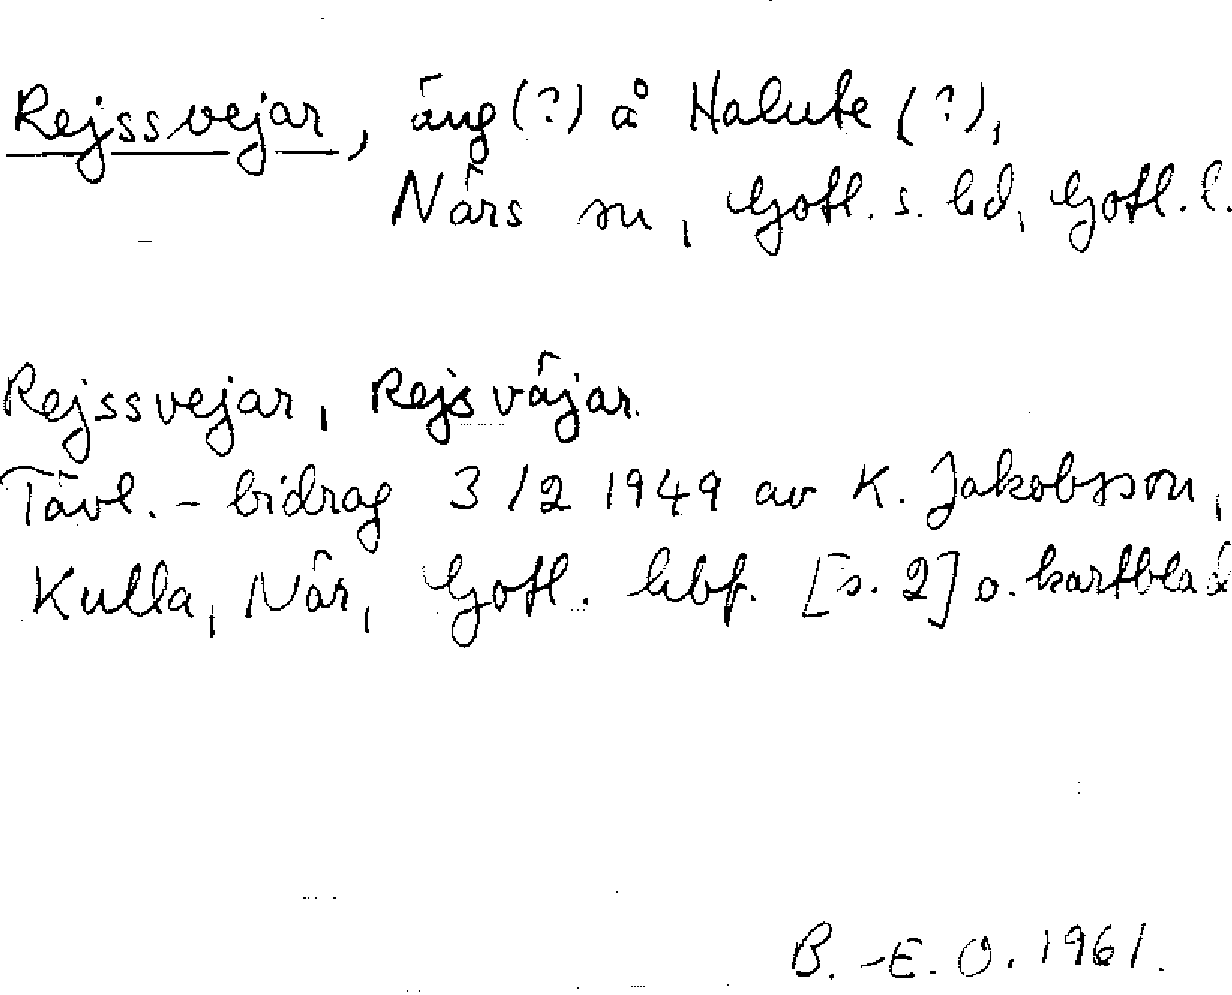 Rejssvejar, äng (?) å Halute (?),
När sn, Gotl. s. hd, Gotl. l.
Rejssvejar, Rejsväjar.
Tävl. - bidrag 3/2 1949 av K. Jakobsson,
Kulla, När, Gotl. hbf. [s. 2] o. kartblad
B.-E. O. 1961.